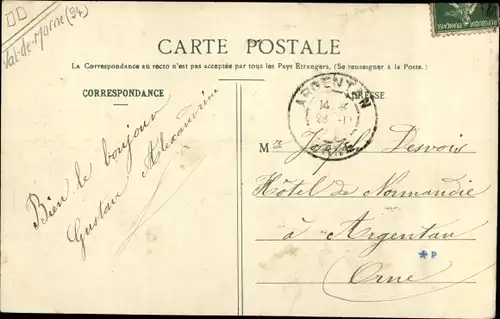 Val-de-Marne (94)
CARTE POSTALE
La Correspondance au recto n'est pas acceptée par tous les Pays Etrangers. (Se renseigner à la Poste.)
CORRESPONDANCE
ADRESSE
ARGENTAN
14
28
ORNE
Bien le bonjour
Gustau Alexandrine
Mr Joseph Desvois
Hôtel de Normandie
à Argentan
Orne
*P